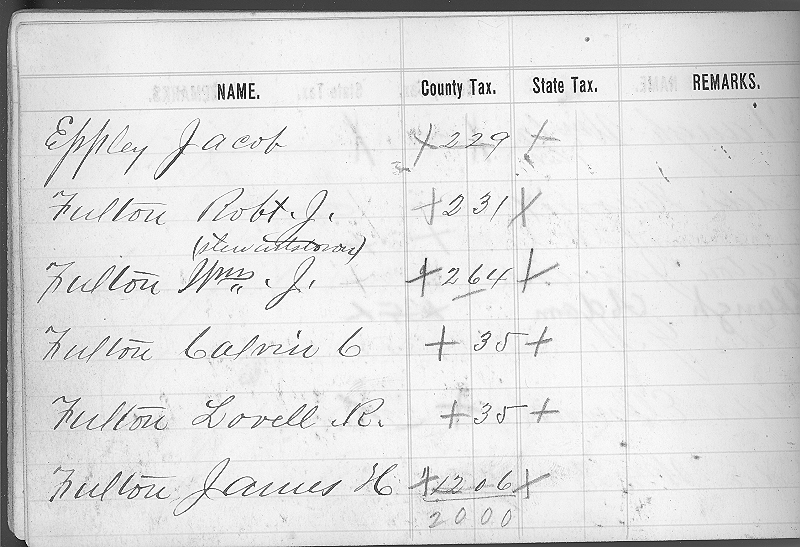 NAME. County Tax. State Tax. REMARKS.
Eppley Jacob + 229 +
Fulton Robt. J. + 231 +
(Stewartstown)
Fulton Wm. J. + 264 +
Fulton Calvin C + 35 +
Fulton Lovell R. + 35 +
Fulton James H + 1206 +
2000